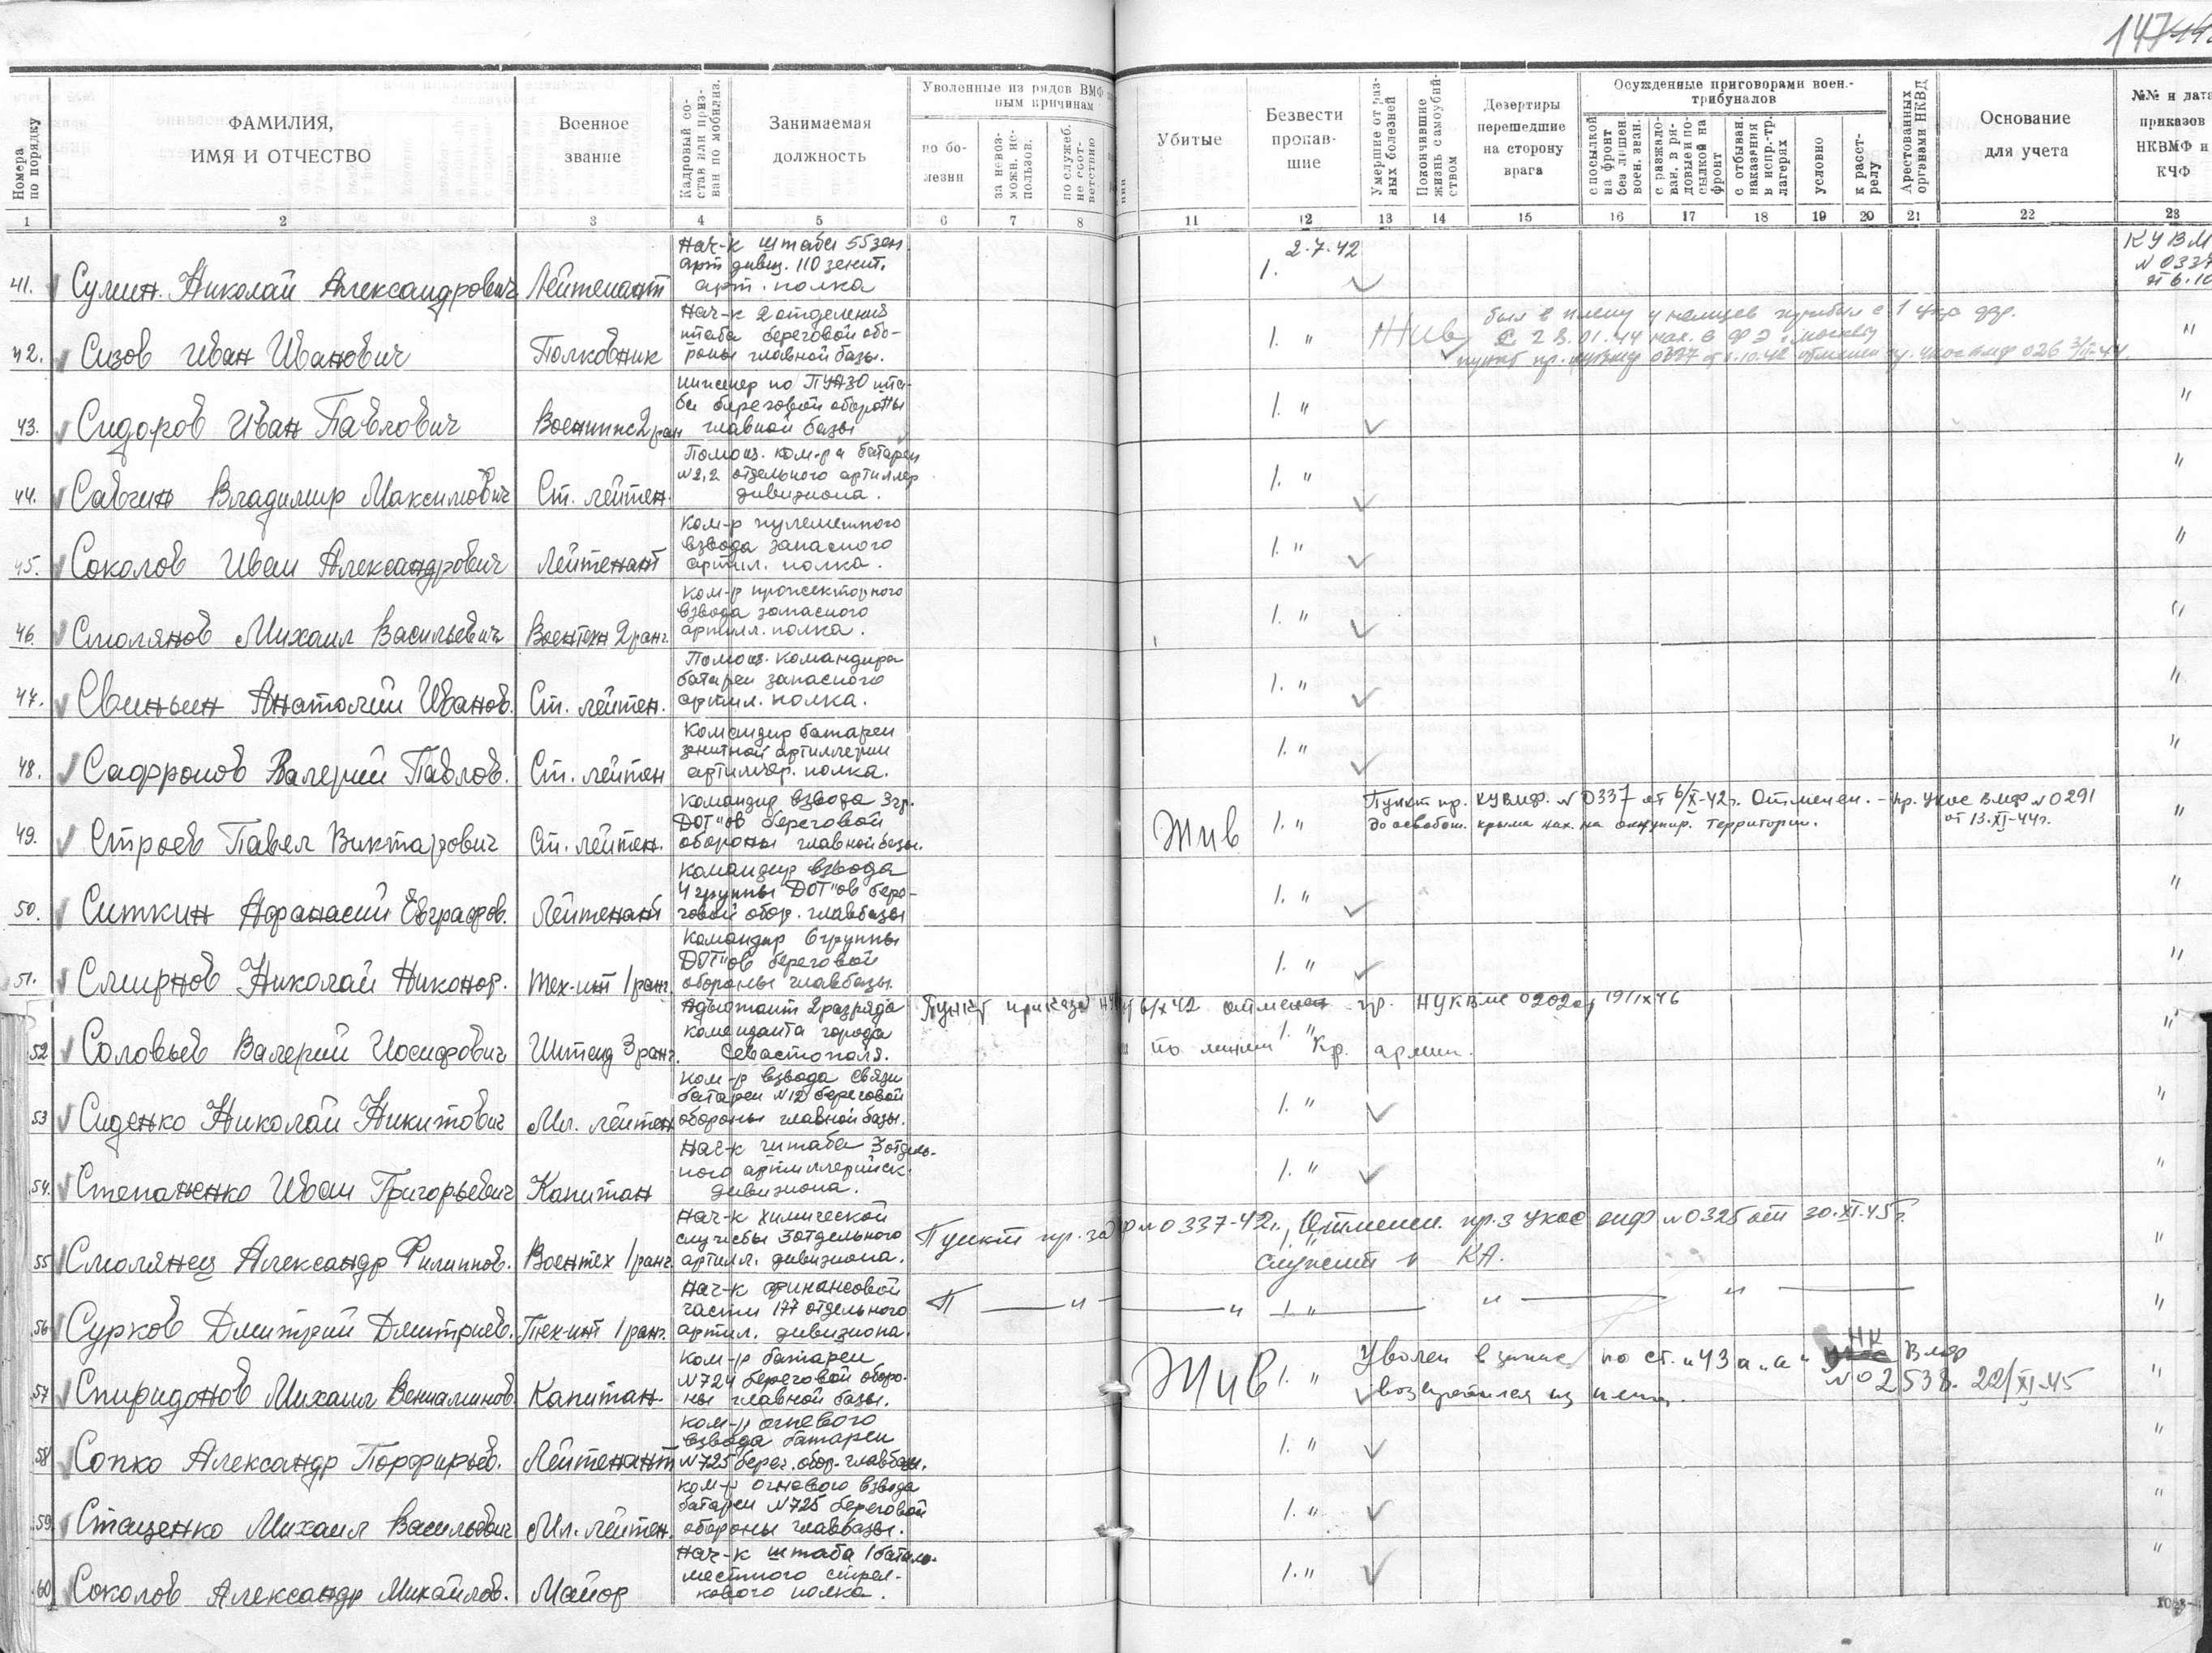 147
Номера по порядку
ФАМИЛИЯ,
ИМЯ И ОТЧЕСТВО
Военное
звание
Кадровый со-
став или приз-
ван по мобилиз.
Занимаемая
должность
Уволенные из рядов ВМФ
ным причинам
по бо-
лезни
за невоз-
можн. ис-
пользов.
по служеб.
не соот-
ветствию
Убитые
Безвести
пропав-
шие
Умершие от раз-
ных болезней
Покончившие
жизнь самоубий-
ством
Дезертиры
перешедшие
на сторону
врага
Осужденные приговорами воен.-
трибуналов
с посылкой
на фронт
без лишен.
воен. зван.
с разжало-
ван. в ря-
довые и по-
сылкой на
фронт
с отбыван.
наказания
в испр.-тр.
лагерях
условно
к расст-
релу
Арестованных
органами НКВД
Основание
для учета
№№ и дата
приказов
НКВМФ и
КЧФ
1 2 3 4 5 6 7 8 11 12 13 14 15 16 17 18 19 20 21 22 23
41. Сумин Николай Александрович Лейтенант
Нач-к штаба 55 зен.
арт дивиз. 110 зенит.
арт. полка
1. 2.7.42
КУВМ
N 0337
от 6.10
42. Сизов Иван Иванович Полковник
Нач-к 2 отделения
штаба береговой обо-
роны главной базы.
1. " Жив
был в плену у немцев прибыл с 1 укр
"
43. Сидоров Иван Павлович Военинж 2 ран
инженер по ПУАЗО шта-
ба береговой обороны
главной базы
1. " "
44. Савчин Владимир Максимович Ст. лейтен.
Помощ. ком-ра батареи
N 2, 2 отдельного артиллер
дивизиона.
1. " "
45. Соколов Иван Александрович Лейтенант
Ком-р пулеметного
взвода запасного
артил. полка.
1. " "
46. Смолянов Михаил Васильевич Воентехн 2 ранг.
Ком-р прожекторного
взвода запасного
артилл. полка.
1. " "
47. Свиньин Анатолий Иванов. Ст. лейтен.
Помощ. командира
батареи запасного
артил. полка.
1. " "
48. Сафронов Валерий Павлов. Ст. лейтен
Командир батареи
зенитной артиллерии
артиллер. полка.
1. " "
49. Строев Павел Виктарович Ст. лейтен.
Командир взвода 3 гр.
ДОТ"ов береговой
обороны главной базы.
Жив 1. "
Пункт пр. КУВмф. N 0337 от 6/X-42г. Отменен. - пр. УКОС ВМФ N 0291
до освобож. Крыма нах. на оккупир. территории. от 13.XI-44г.
"
50. Ситкин Афанасий Евграфов. Лейтенант
Командир взвода
4 группы ДОТ"ов бере-
говой обор. главбазы
1. " "
51. Смирнов Николай Никонор. Тех-инт 1 ранг.
Командир 6 группы
ДОТ"ов береговой
обороны главбазы.
1. " "
52 Соловьев Валерий Иосифович Интенд 3 ранг.
Адъютант 2 разряда
коменданта города
Севастополя.
Пункт приказа 6/X 42 отменен пр. НУКВМС 0202 от 19/IX 46
1. " по линии Кр. армии.
"
53 Сиденко Николай Никитович Мл. лейтен
Ком-р взвода связи
батареи N 12 береговой
обороны главной базы.
1. " "
54. Степаненко Иван Григорьевич Капитан
Нач-к штаба 3 отдель-
ного артиллерийск.
дивизиона.
1. " "
55 Смолянец Александр Филиппов. Воентех 1 ранг.
Нач-к химической
службы 3 отдельного
артилл. дивизиона.
Пункт пр. N 0337-42г., Отменен. пр-з УКОС ВМФ N 0325 от 30.XI.45г.
служит в КА.
"
56 Сурков Дмитрий Дмитриев. Тех-инт 1 ранг.
Нач-к финансовой
части 177 отдельного
артил. дивизиона.
П — " — " 1. " — " — " —
"
57 Спиридонов Михаил Вениаминов. Капитан
Ком-р батареи
N 724 береговой оборо-
ны главной базы.
Жив 1. "
Уволен в запас по ст. "43 а "а" НК ВМФ
возвратился из плена. N 02538. 22/XI-45
"
58 Сопко Александр Порфирьев. Лейтенант
ком-р огневого
взвода батареи
N 725 берег. обор. главбазы.
1. " "
59. Стаценко Михаил Васильевич Мл. лейтен.
ком-р огневого взвода
батареи N 725 береговой
обороны главбазы.
1. " "
60 Соколов Александр Михайлов. Майор
Нач-к штаба 1 батал.
местного стрел-
кового полка.
1. " "